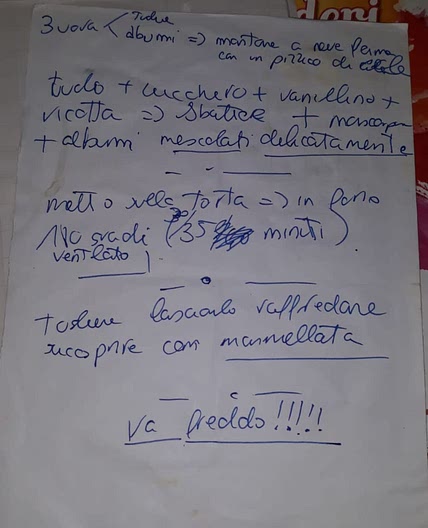 3 uova < tuorli
albumi => montare a neve ferma
con un pizzico di sale
tuorlo + zucchero + vanillina +
ricotta => sbattere + mascarpone
+ albumi mescolati delicatamente
metto nella torta => in forno
180 gradi (35 minuti)
ventilato
togliere lasciarlo raffreddare
ricoprire con marmellata
va freddo!!!!!